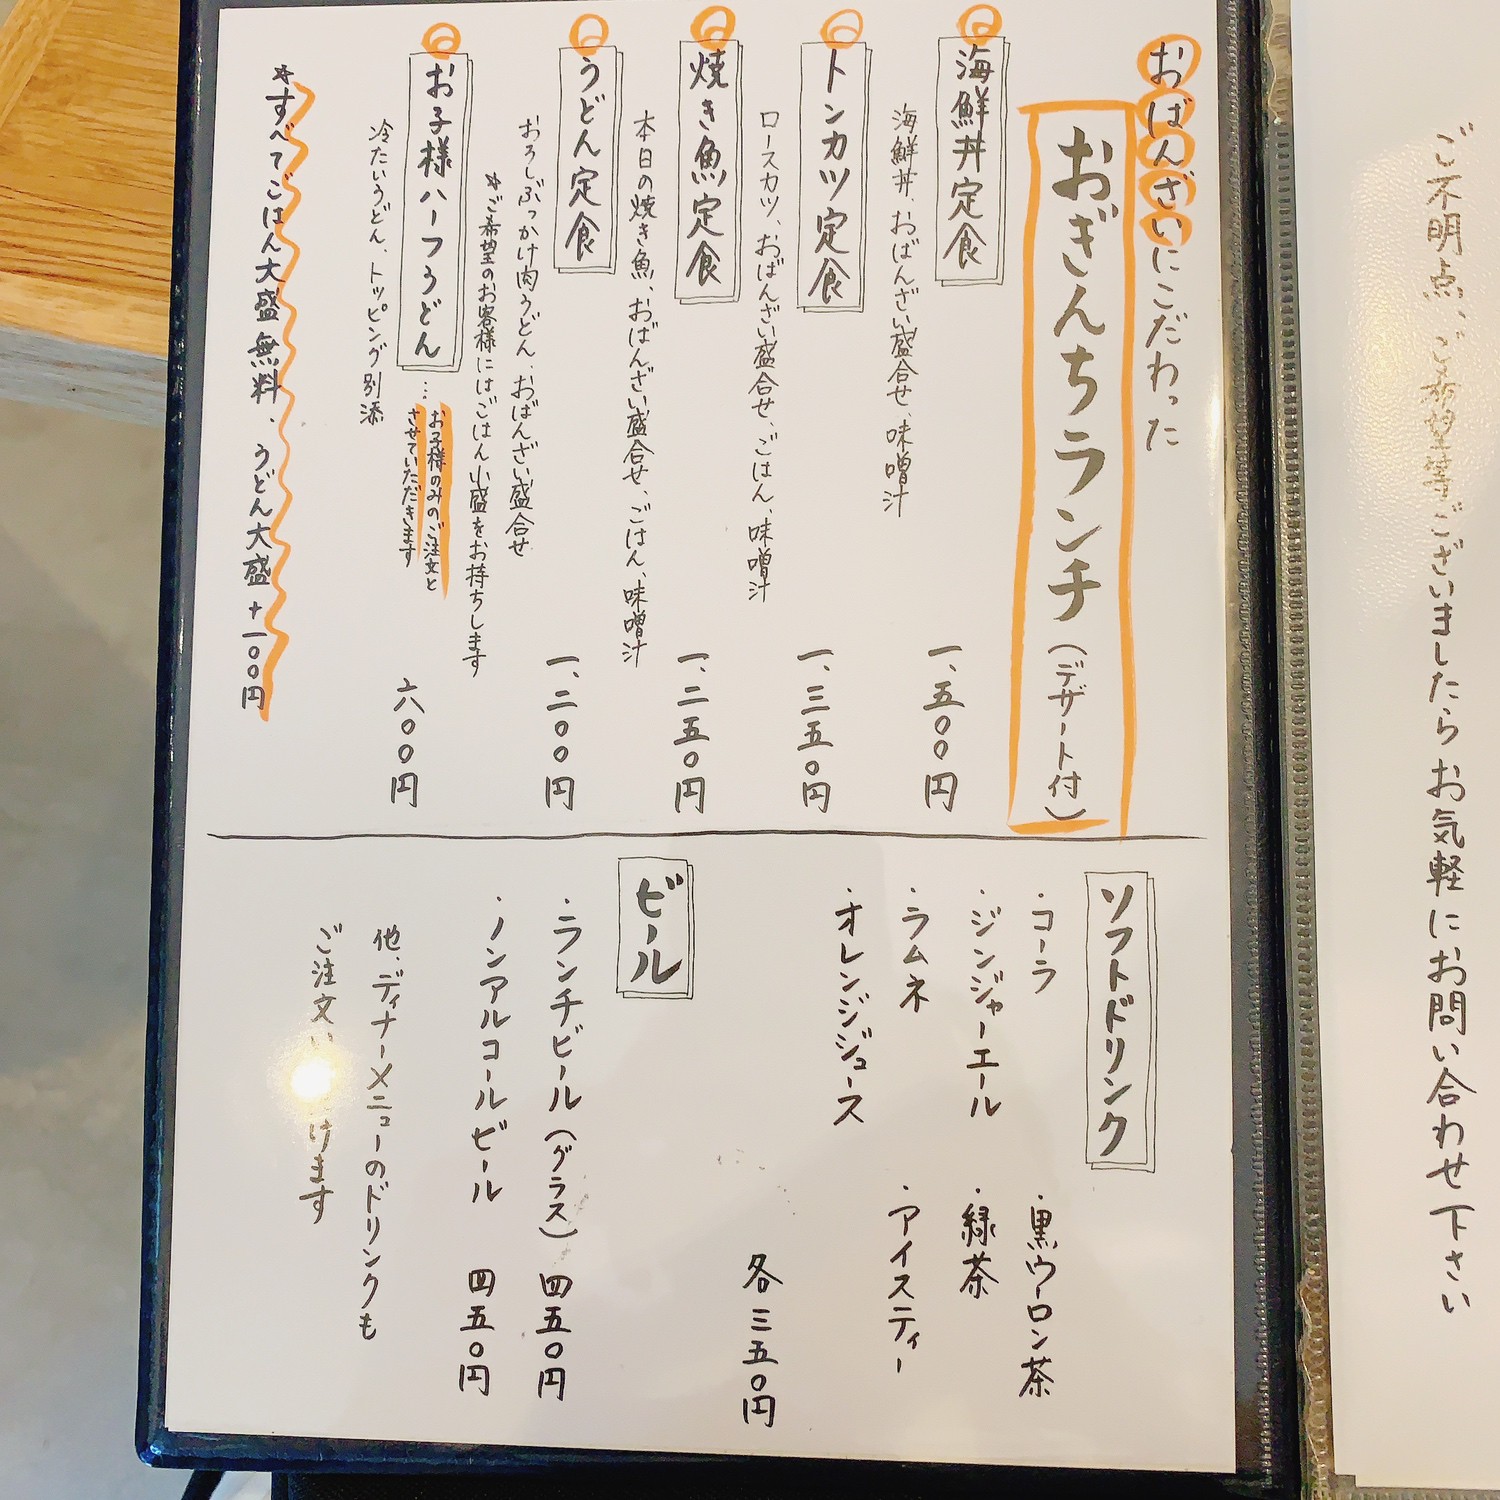 ご不明点、ご希望等ございましたらお気軽にお問い合わせ下さい
おばんざいにこだわった
おぎんちランチ(デザート付)
海鮮丼定食
海鮮丼、おばんざい盛合せ、味噌汁
一、五〇〇円
トンカツ定食
ロースカツ、おばんざい盛合せ、ごはん、味噌汁
一、三五〇円
焼き魚定食
本日の焼き魚、おばんざい盛合せ、ごはん、味噌汁
一、二五〇円
うどん定食
おろしぶっかけ肉うどん、おばんざい盛合せ
*ご希望のお客様にはごはん小盛をお持ちします
一、二〇〇円
お子様ハーフうどん…お子様のみのご注文と
させていただきます
冷たいうどん、トッピング別添
六〇〇円
*すべてごはん大盛無料、うどん大盛+一〇〇円
ソフトドリンク
・コーラ
・黒ウーロン茶
・ジンジャーエール
・緑茶
・ラムネ
・アイスティー
・オレンジジュース
各三五〇円
ビール
・ランチビール(グラス) 四五〇円
・ノンアルコールビール 四五〇円
他、ディナーメニューのドリンクも
ご注文い けます